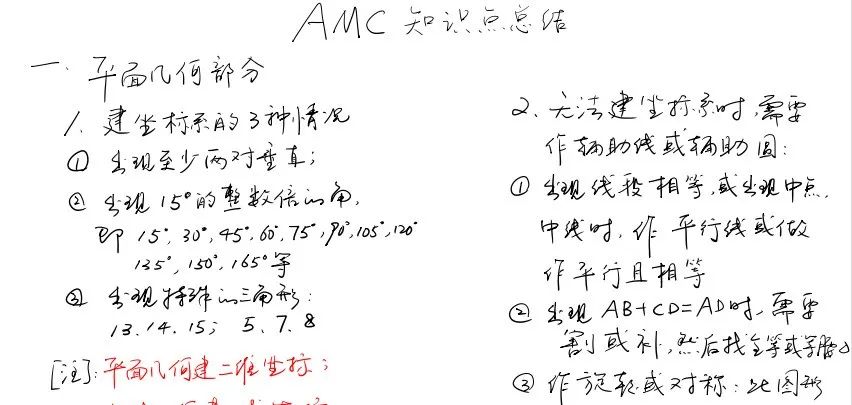 AMC 知识点总结
一. 平面几何部分
1. 建坐标系的3种情况
① 出现至少两对垂直;
② 出现15°的整数倍的角,
即 15°, 30°, 45°, 60°, 75°, 90°, 105°, 120°
135°, 150°, 165° 等
③ 出现特殊的三角形:
13. 14. 15; 5、7、8
[注]: 平面几何建二维坐标;
2、无法建坐标系时, 需要
作辅助线或辅助圆:
① 出现线段相等, 或出现中点,
中线时, 作 平行线或做
作平行且相等
② 出现 AB+CD=AD时, 需要
割或补, 然后找全等或等腰△
③ 作旋转或对称: 此图形